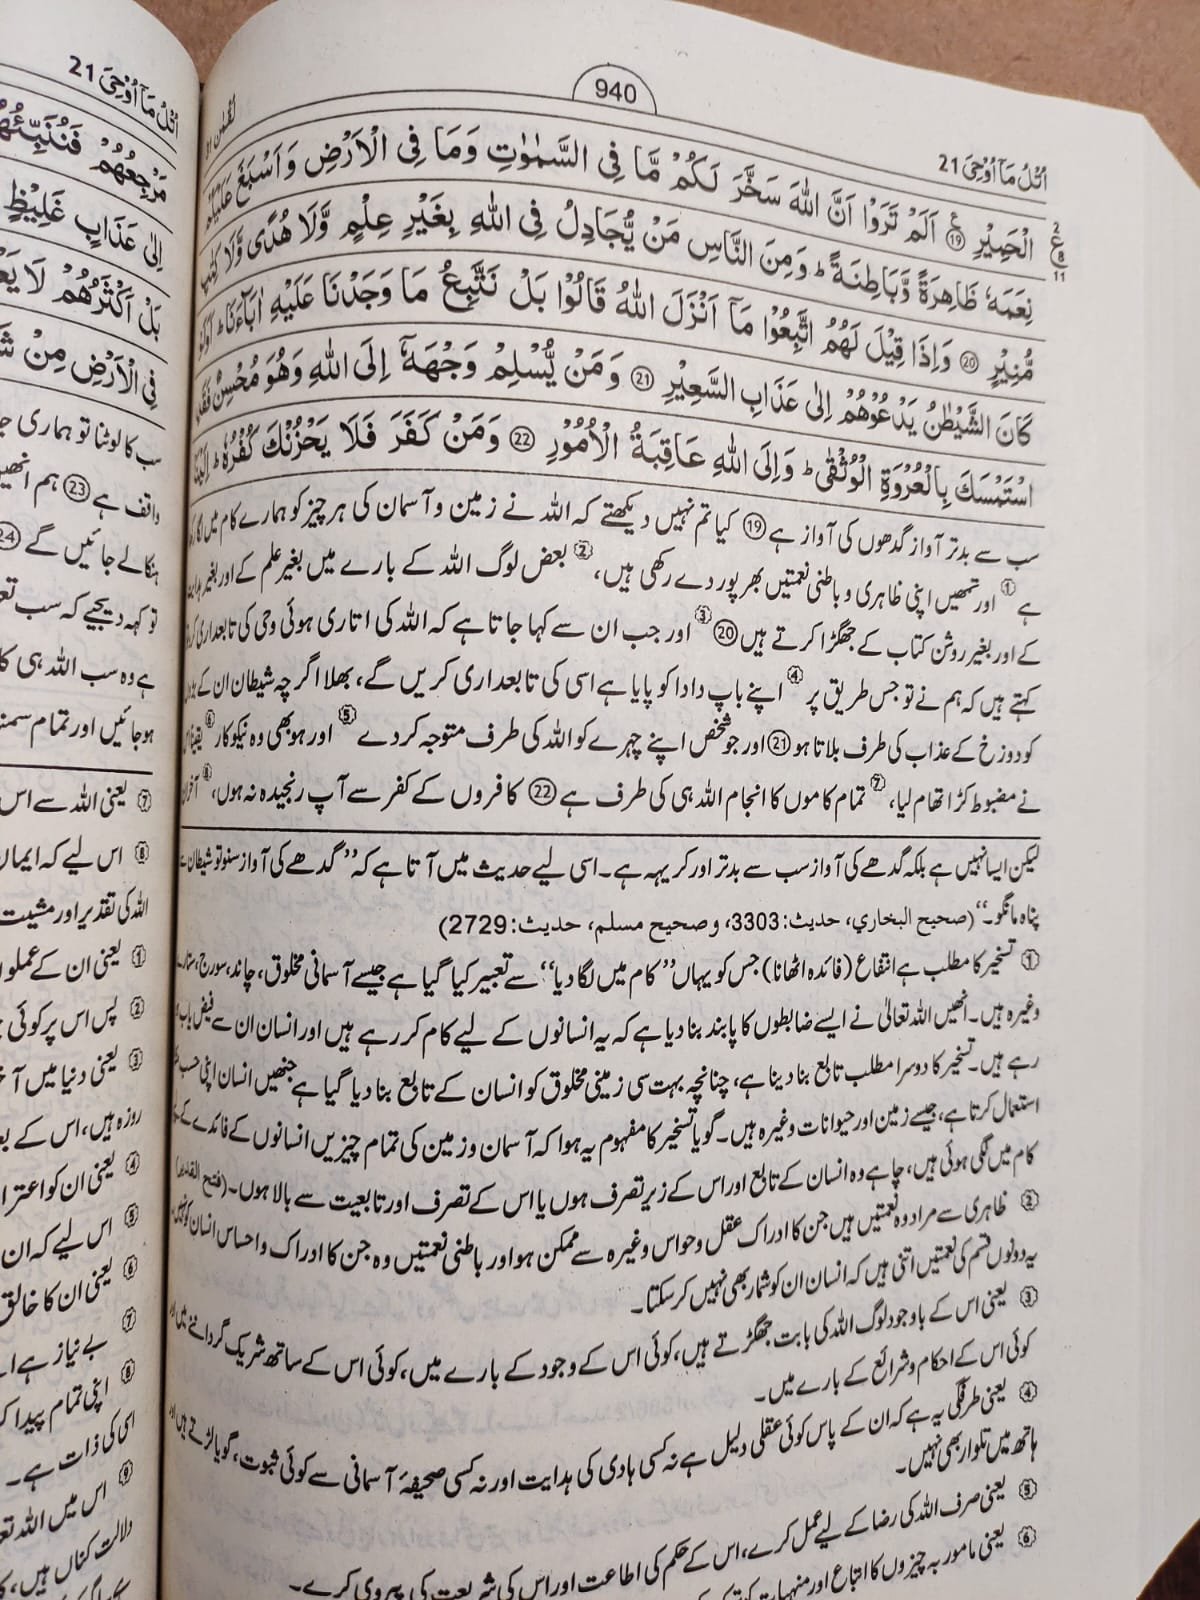 940
اُتْلُ مَاۤ اُوْحِیَ 21
لُقْمٰن 31
2
ع
8
11
الْحَمِيْرِ ⑲ اَلَمْ تَرَوْا اَنَّ اللّٰهَ سَخَّرَ لَكُمْ مَّا فِى السَّمٰوٰتِ وَمَا فِى الْاَرْضِ وَاَسْبَغَ عَلَيْكُمْ
نِعَمَهٗ ظَاهِرَةً وَّبَاطِنَةً ؕ وَمِنَ النَّاسِ مَنْ يُّجَادِلُ فِى اللّٰهِ بِغَيْرِ عِلْمٍ وَّلَا هُدًى وَّلَا كِتٰبٍ
مُّنِيْرٍ ⑳ وَاِذَا قِيْلَ لَهُمُ اتَّبِعُوْا مَاۤ اَنْزَلَ اللّٰهُ قَالُوْا بَلْ نَتَّبِعُ مَا وَجَدْنَا عَلَيْهِ اٰبَآءَنَا ؕ اَوَلَوْ
كَانَ الشَّيْطٰنُ يَدْعُوْهُمْ اِلٰى عَذَابِ السَّعِيْرِ ㉑ وَمَنْ يُّسْلِمْ وَجْهَهٗۤ اِلَى اللّٰهِ وَهُوَ مُحْسِنٌ فَقَدِ
اسْتَمْسَكَ بِالْعُرْوَةِ الْوُثْقٰى ؕ وَاِلَى اللّٰهِ عَاقِبَةُ الْاُمُوْرِ ㉒ وَمَنْ كَفَرَ فَلَا يَحْزُنْكَ كُفْرُهٗ ؕ اِلَيْنَا
سب سے بدتر آواز گدھوں کی آواز ہے ⑲ کیا تم نہیں دیکھتے کہ اللہ نے زمین و آسمان کی ہر چیز کو ہمارے کام میں لگا رکھا
ہے ① اور تمھیں اپنی ظاہری و باطنی نعمتیں بھرپور دے رکھی ہیں، ② بعض لوگ اللہ کے بارے میں بغیر علم کے اور بغیر ہدایت
کے اور بغیر روشن کتاب کے جھگڑا کرتے ہیں ⑳ ③ اور جب ان سے کہا جاتا ہے کہ اللہ کی اتاری ہوئی وحی کی تابعداری کرو
کہتے ہیں کہ ہم نے تو جس طریق پر ④ اپنے باپ دادا کو پایا ہے اسی کی تابعداری کریں گے، بھلا اگر چہ شیطان ان کے
کو دوزخ کے عذاب کی طرف بلاتا ہو ㉑ اور جو شخص اپنے چہرے کو اللہ کی طرف متوجہ کر دے ⑤ اور ہو بھی وہ نیکوکار ⑥ یقیناً
نے مضبوط کڑا تھام لیا، ⑦ تمام کاموں کا انجام اللہ ہی کی طرف ہے ㉒ کافروں کے کفر سے آپ رنجیدہ نہ ہوں، ⑧ آخر
لیکن ایسا نہیں ہے بلکہ گدھے کی آواز سب سے بدتر اور کریہہ ہے۔ اسی لیے حدیث میں آتا ہے کہ ”گدھے کی آواز سنو تو شیطان سے
پناہ مانگو۔“ (صحيح البخاري، حديث: 3303، وصحيح مسلم، حديث: 2729)
① تسخیر کا مطلب ہے انتفاع (فائدہ اٹھانا) جس کو یہاں ”کام میں لگا دیا“ سے تعبیر کیا گیا ہے جیسے آسمانی مخلوق، چاند، سورج، ستارے
وغیرہ ہیں۔ انھیں اللہ تعالیٰ نے ایسے ضابطوں کا پابند بنا دیا ہے کہ یہ انسانوں کے لیے کام کر رہے ہیں اور انسان ان سے فیض یاب ہو
رہے ہیں۔ تسخیر کا دوسرا مطلب تابع بنا دینا ہے، چنانچہ بہت سی زمینی مخلوق کو انسان کے تابع بنا دیا گیا ہے جنھیں انسان اپنی حسب
استعمال کرتا ہے، جیسے زمین اور حیوانات وغیرہ ہیں۔ گویا تسخیر کا مفہوم یہ ہوا کہ آسمان و زمین کی تمام چیزیں انسانوں کے فائدے کے
کام میں لگی ہوئی ہیں، چاہے وہ انسان کے تابع اور اس کے زیر تصرف ہوں یا اس کے تصرف اور تابعیت سے بالا ہوں۔ (فتح القدير)
② ظاہری سے مراد وہ نعمتیں ہیں جن کا ادراک عقل و حواس وغیرہ سے ممکن ہو اور باطنی نعمتیں وہ جن کا ادراک و احساس انسان کو نہیں۔
یہ دونوں قسم کی نعمتیں اتنی ہیں کہ انسان ان کو شمار بھی نہیں کر سکتا۔
③ یعنی اس کے باوجود لوگ اللہ کی بابت جھگڑتے ہیں، کوئی اس کے وجود کے بارے میں، کوئی اس کے ساتھ شریک گرداننے میں اور
کوئی اس کے احکام و شرائع کے بارے میں۔
④ یعنی طرفگی یہ ہے کہ ان کے پاس کوئی عقلی دلیل ہے نہ کسی ہادی کی ہدایت اور نہ کسی صحیفۂ آسمانی سے کوئی ثبوت، گویا لڑتے ہیں اور
ہاتھ میں تلوار بھی نہیں۔
⑤ یعنی صرف اللہ کی رضا کے لیے عمل کرے، اس کے حکم کی اطاعت اور اس کی شریعت کی پیروی کرے۔
⑥ یعنی مامور بہ چیزوں کا اتباع اور منہیات کو ترک
اُتْلُ مَاۤ اُوْحِیَ 21
مَرْجِعُهُمْ فَنُنَبِّئُهُمْ
اِلٰى عَذَابٍ غَلِيْظٍ
بَلْ اَكْثَرُهُمْ لَا
فِى الْاَرْضِ مِنْ
سب کا لوٹنا تو ہماری
واقف ہے ㉓ ہم انھیں
ہنکالے جائیں گے ㉔
تو کہہ دیجیے کہ سب
ہے وہ سب اللہ ہی کا
ہو جائیں اور تمام
⑦ یعنی اللہ سے اس
⑧ اس لیے کہ ایمان
اللہ کی تقدیر اور مشیت
① یعنی ان کے عملوں
② پس اس پر کوئی
③ یعنی دنیا میں آ
روزہ ہیں، اس کے
④ یعنی ان کو
⑤ اس لیے کہ ان
⑥ یعنی ان کا خالق
⑦ بے نیاز ہے
⑧ اپنی تمام پیدا
اسی کی ذات ہے۔
⑨ اس میں اللہ
دلالت کناں ہیں،